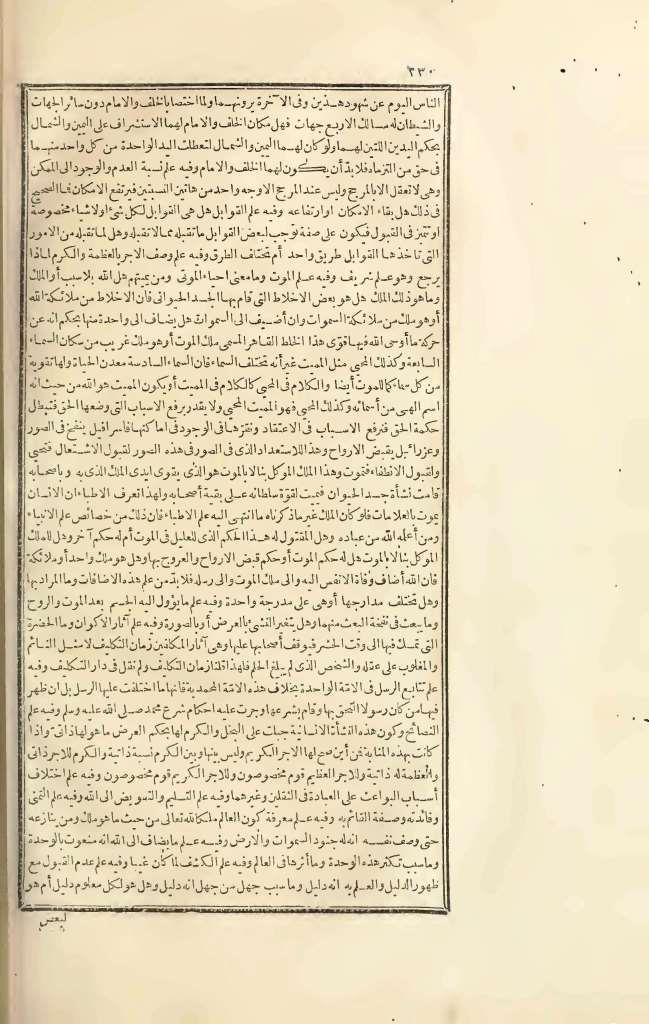 ٢٣٠
الناس اليوم عن شهود هذين وفى الآخرة يرونهما ولما اختصا بالخلف والامام دون سائر الجهات
والشيطان له مسالك الاربع جهات فهل مكان الخلف والامام لهما الاستشراف على اليمين والشمال
بحكم اليدين اللتين لهما ولو كان لهما اليمين والشمال لتعطلت اليد الواحدة من كل واحد منهما
فى حق من التزماه فلابد أن يكون لهما الخلف والامام وفيه علم نسبة العدم والوجود الى الممكن
وهى لا تعقل الا بالمرجح وليس عند المرجح الاوجه واحد من هاتين النسبتين فيرتفع الامكان فما الصحيح
فى ذلك هل بقاء الامكان او ارتفاعه وفيه علم القوابل هل هى القوابل لكل شئ او لاشياء مخصوصة
او تتميز فى القبول فيكون على صفة توجب لبعض القوابل ما تقبله مما لا تقبله وهل لما تقبله من الامور
التى تاخذها القوابل طريق واحد أم تختلف الطرق وفيه علم وصف الاجر بالعظمة والكرم لماذا
يرجع وهو علم شريف وفيه علم الموت وما معنى احياء الموتى ومن يميتهم هل الله بلا سبب أو الملك
وما هو ذلك الملك هل هو بعض الاخلاط التى قام بها الجسد الحيوانى فان الاخلاط من ملائكة الله
أو هو ملك من ملائكة السموات وان أضيف الى السموات هل يضاف الى واحدة منها بحكم انه عن
حركة ما أوحى الله فيها قوى هذا الخلط القاهر المسمى ملك الموت أو هو ملك غريب من سكان السماء
السابعة وكذلك المحيى مثل المميت غير أنه تختلف السماء فان السماء السادسة معدن الحياة ولها تقوية
من كل سماء كما للموت أيضا والكلام فى المحيى كالكلام فى المميت أو يكون المميت هو الله من حيث انه
اسم الهى من أسمائه وكذلك المحيى فهو المميت المحيى ولا يقدر يرفع الاسباب التى وضعها الحق فتبطل
حكمة الحق فنرفع الاسباب فى الاعتقاد ونقرها فى الوجود فى اماكنها فاسرافيل ينفخ فى الصور
وعزرائيل يقبض الارواح وهذا للاستعداد الذى فى الصور فى هذه الصور لقبول الاشتعال فتحيى
ولقبول الانطفاء فتموت وهذا الملك الموكل بنا لا بالموت هو الذى يقوى ايدى الملك الذى به وباصحابه
قامت نشأة جسد الحيوان فميت لقوة سلطانه على بقية أصحابه ولهذا تعرف الاطباء ان الانسان
يموت بالعلامات فلو كان الملك غير ما ذكرناه ما انتهى اليه علم الاطباء فان ذلك من خصائص علم الانبياء
ومن أعلمه الله من عباده وهل المقتول له هذا الحكم الذى للعليل فى الموت أم له حكم آخر وهل للملك
الموكل بنا لا بالموت هل له حكم الموت أو حكم قبض الارواح والعروج بها وهل هو ملك واحد أو ملائكة
فان الله أضاف وفاة الانفس اليه والى ملك الموت والى رسله فلابد من علم هذه الاضافات وما المراد بها
وهل تختلف مدارجها أو هى على مدرجة واحدة وفيه علم ما يؤول اليه الجسم بعد الموت والروح
وما يبعث فى نفخة البعث منهما وهل يتغير الشئ بالعرض أو بالصورة وفيه علم آثار الاكوان وما الحضرة
التى تمسك فيها الى وقت الحشر فيوقف أصحابها عليها وهى آثار المكلفين زمان التكليف لا مثل النائم
والمغلوب على عقله والشخص الذى لم يبلغ الحلم فلهذا قلنا زمان التكليف ولم نقل فى دار التكليف وفيه
علم تتابع الرسل فى الامة الواحدة بخلاف هذه الامة المحمدية فانها ما اختلفت عليها الرسل بل ان ظهر
فيها من كان رسولا التحق بها وقام بشرعها وجرت عليه احكام شرع محمد صلى الله عليه وسلم وفيه علم
النصائح وكون هذه النشأة الانسانية جبلت على البخل والكرم لها بحكم العرض ما هو لها ذاتى واذا
كانت بهذه المثابة فمن أين صح لها الاجر الكريم وليس بينها وبين الكرم نسبة ذاتية والكرم للاجر ذاتى
والعظمة له ذاتية وللاجر العظيم قوم مخصوصون وللاجر الكريم قوم مخصوصون وفيه علم اختلاف
أسباب البواعث على العبادة فى الثقلين وغيرهما وفيه علم التسليم والتفويض الى الله وفيه علم التمنى
وفائدته وصفة القائم به وفيه علم معرفة كون العالم ملكا لله تعالى من حيث ما هو ملك ومن ينازعه
حتى وصف نفسه انه له جنود السموات والارض وفيه علم ما يضاف الى الله انه منعوت بالوحدة
وما سبب تكثر هذه الوحدة وما أثرها فى العالم وفيه علم الكشف لما كان غيبا وفيه علم عدم القبول مع
ظهور الدليل والعلم به انه دليل وما سبب جهل من جهل انه دليل وهل هو لكل معلوم دليل أم هو
لبعض